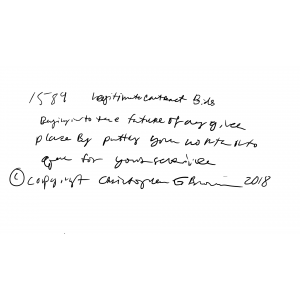 1589 Legitimate contract Bids
Buying into the future of any given
place By putting your worth into
open for your services
© copyright Christopher G Brown 2018